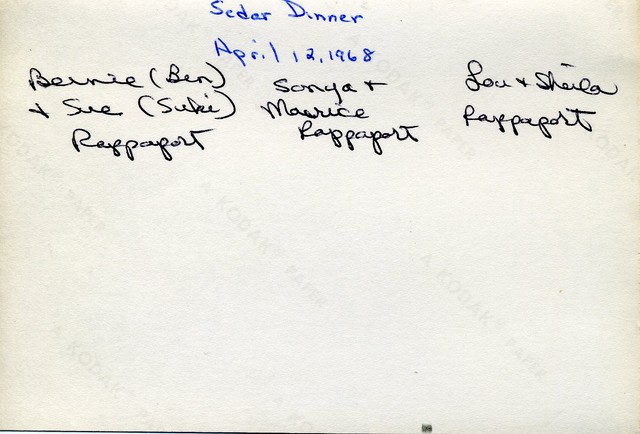 Sedar Dinner
April 12, 1968
Bernie (Ben)
+ Sue (Suki)
Rappaport
Sonya +
Maurice
Rappaport
Lou + Sheila
Rappaport
A KODAK® PAPER
A KODAK® PAPER
A KODAK® PAPER